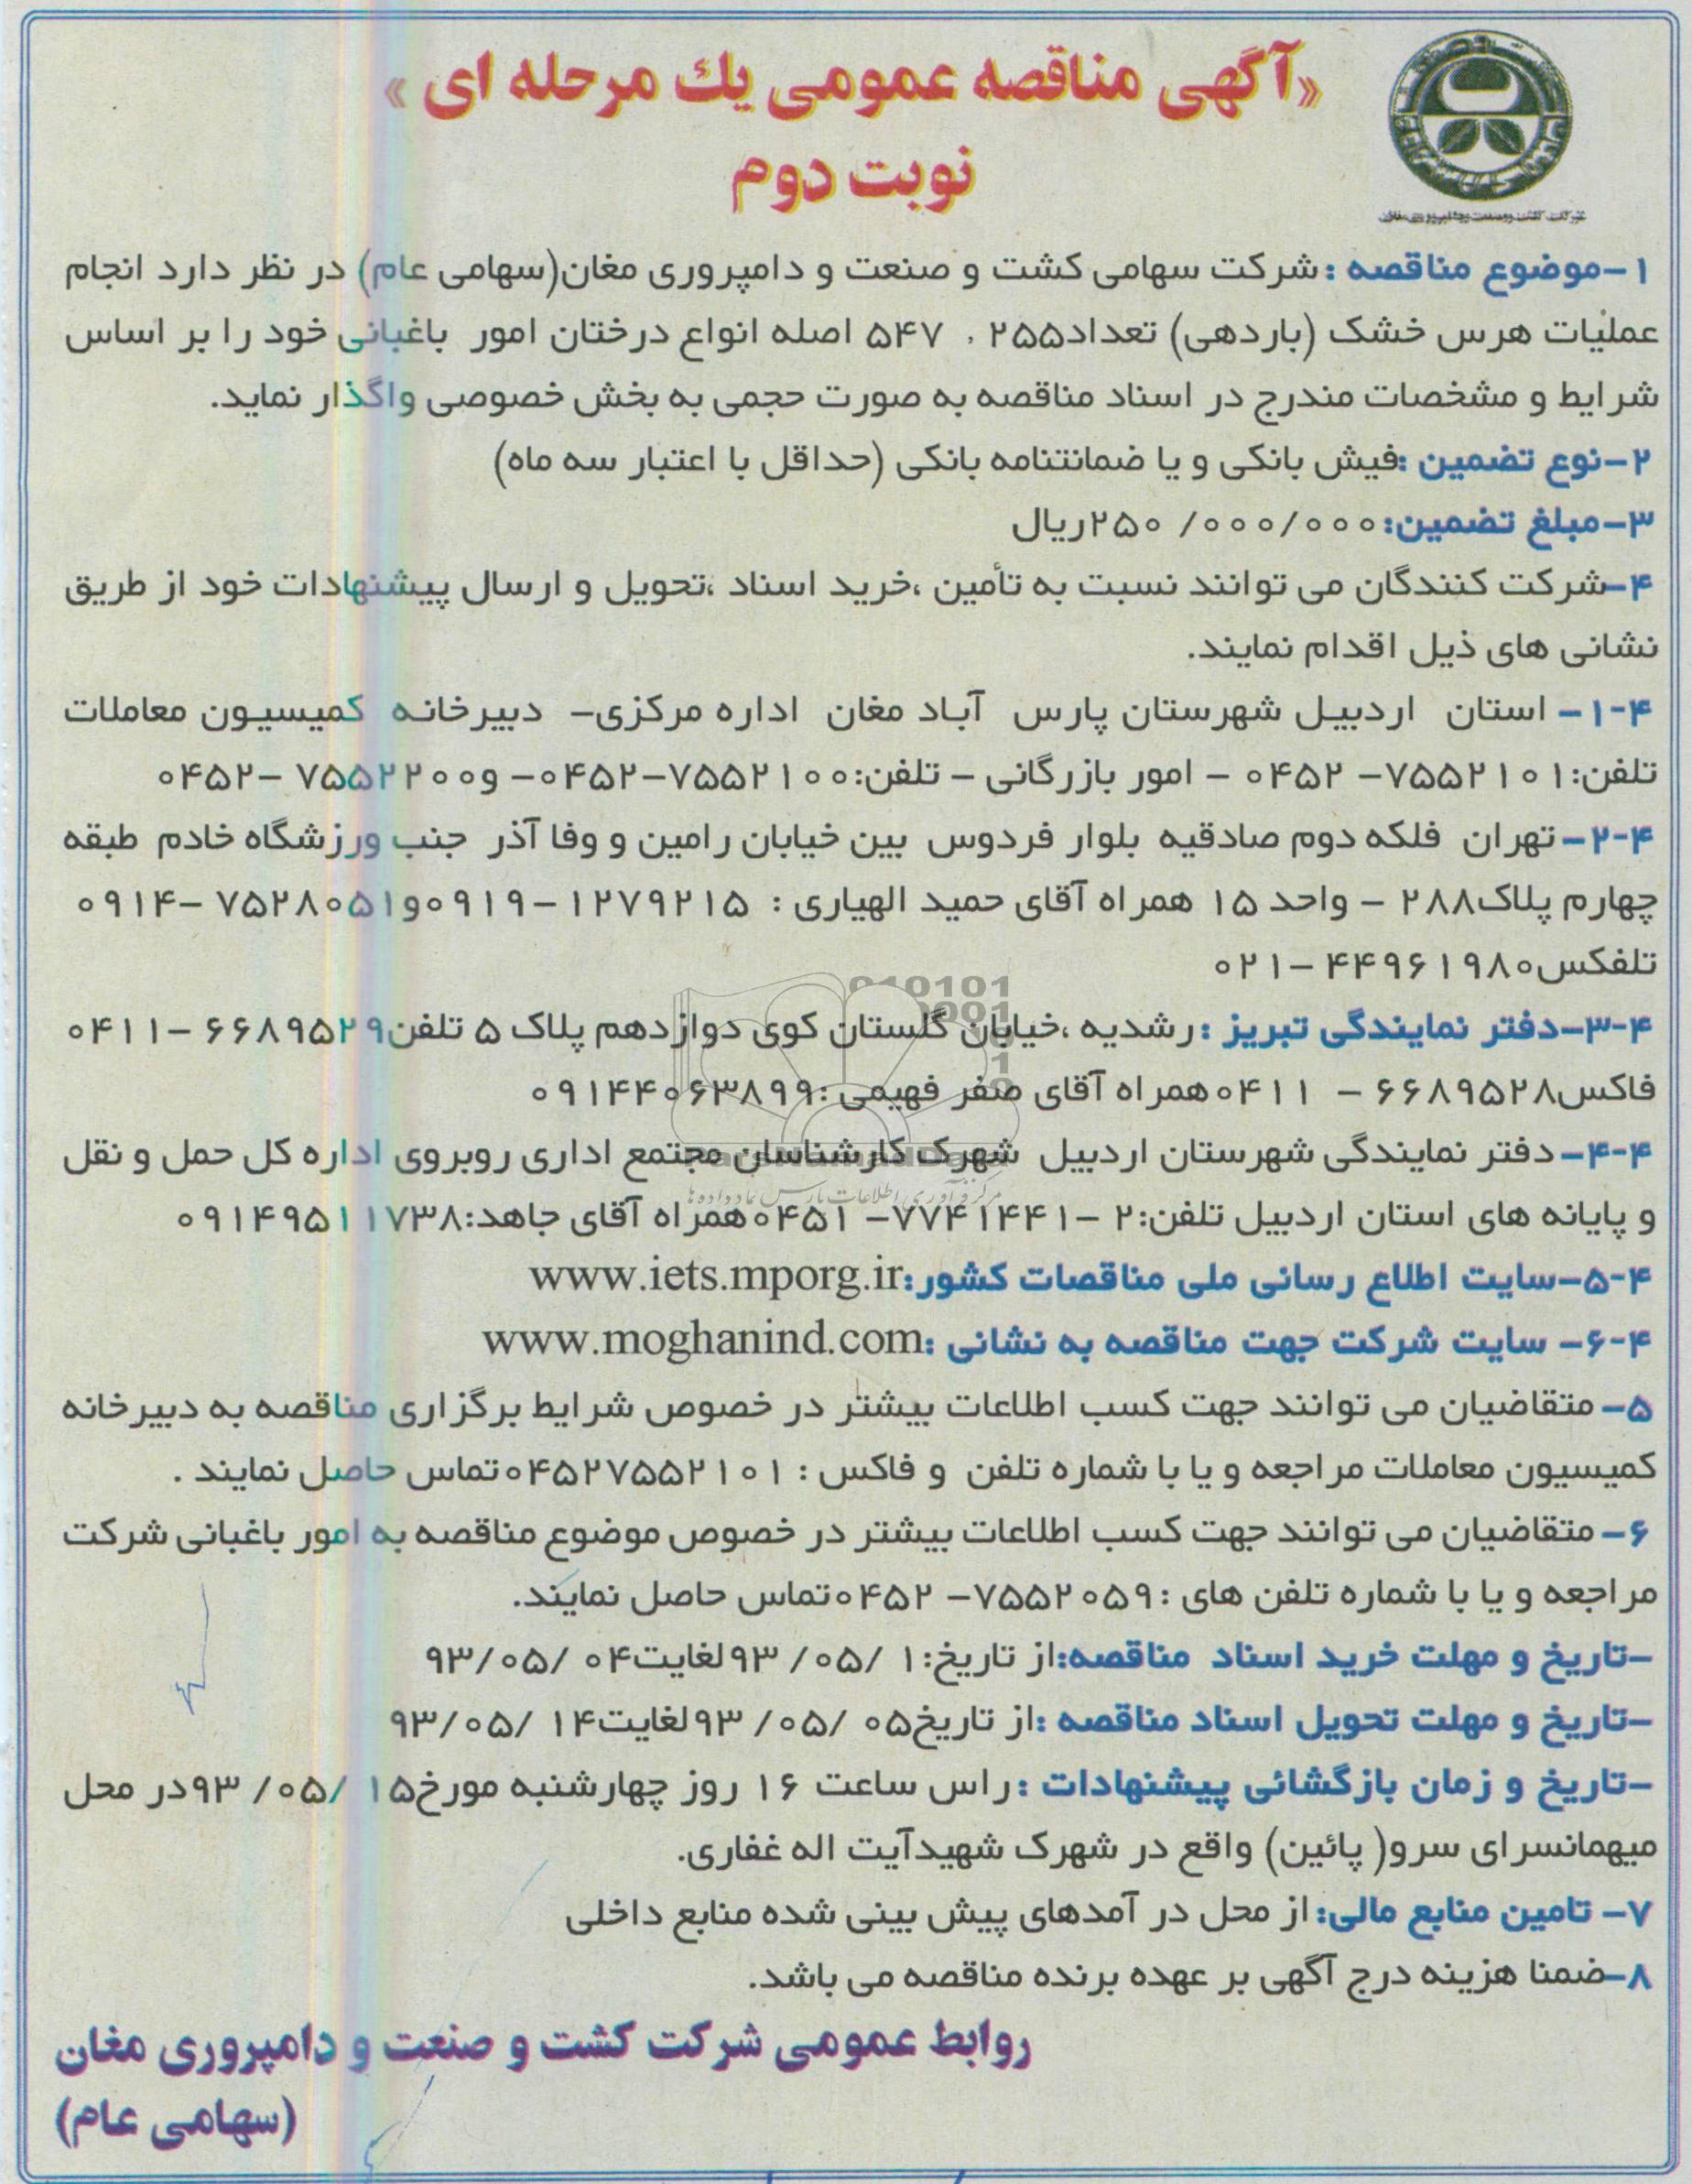 «آگهی مناقصه عمومی یك مرحله ای »
نوبت دوم
شرکت کشت وصنعت ودامپروری مغان
۱-موضوع مناقصه : شرکت سهامی کشت و صنعت و دامپروری مغان(سهامی عام) در نظر دارد انجام
عملیات هرس خشک (باردهی) تعداد۲۵۵ . ۵۴۷ اصله انواع درختان امور باغبانی خود را بر اساس
شرایط و مشخصات مندرج در اسناد مناقصه به صورت حجمی به بخش خصوصی واگذار نماید.
۲-نوع تضمین :فیش بانکی و یا ضمانتنامه بانکی (حداقل با اعتبار سه ماه)
۳-مبلغ تضمین:۲۵۰ /۰۰۰/۰۰۰ریال
۴-شرکت کنندگان می توانند نسبت به تأمین ،خرید اسناد ،تحویل و ارسال پیشنهادات خود از طریق
نشانی های ذیل اقدام نمایند.
۴-۱- استان اردبیل شهرستان پارس آباد مغان اداره مرکزی- دبیرخانه کمیسیون معاملات
تلفن:۷۵۵۲۱۰۱- ۰۴۵۲ - امور بازرگانی - تلفن:۷۵۵۲۱۰۰-۰۴۵۲- و۷۵۵۲۲۰۰ -۰۴۵۲
۴-۲-تهران فلکه دوم صادقیه بلوار فردوس بین خیابان رامین و وفا آذر جنب ورزشگاه خادم طبقه
چهارم پلاک۲۸۸ - واحد ۱۵ همراه آقای حمید الهیاری : ۱۲۷۹۲۱۵-۰۹۱۹و۷۵۲۸۰۵۱ -۰۹۱۴
تلفکس۴۴۹۶۱۹۸۰ -۰۲۱
۴-۳-دفتر نمایندگی تبریز :رشدیه ،خیابان گلستان کوی دوازدهم پلاک ۵ تلفن۶۶۸۹۵۲۹ -۰۴۱۱
فاکس۶۶۸۹۵۲۸ - ۰۴۱۱همراه آقای صفر فهیمی :۰۹۱۴۴۰۶۳۸۹۹
۴-۴-دفتر نمایندگی شهرستان اردبیل شهرک کارشناسان مجتمع اداری روبروی اداره کل حمل و نقل
مرکز فرآوری اطلاعات پارس نماد داده ها
و پایانه های استان اردبیل تلفن:۲ -۷۷۴۱۴۴۱- ۰۴۵۱همراه آقای جاهد:۰۹۱۴۹۵۱۱۷۳۸
۴-۵-سایت اطلاع رسانی ملی مناقصات کشور:www.iets.mporg.ir
۴-۶- سایت شرکت جهت مناقصه به نشانی :www.moghanind.com
۵- متقاضیان می توانند جهت کسب اطلاعات بیشتر در خصوص شرایط برگزاری مناقصه به دبیرخانه
کمیسیون معاملات مراجعه و یا با شماره تلفن و فاکس : ۰۴۵۲۷۵۵۲۱۰۱تماس حاصل نمایند .
۶- متقاضیان می توانند جهت کسب اطلاعات بیشتر در خصوص موضوع مناقصه به امور باغبانی شرکت
مراجعه و یا با شماره تلفن های :۷۵۵۲۰۵۹- ۰۴۵۲تماس حاصل نمایند.
-تاریخ و مهلت خرید اسناد مناقصه:از تاریخ:۱ /۰۵/ ۹۳لغایت۰۴ /۹۳/۰۵
-تاریخ و مهلت تحویل اسناد مناقصه :از تاریخ۰۵ /۰۵/ ۹۳لغایت۱۴ /۹۳/۰۵
-تاریخ و زمان بازگشائی پیشنهادات :راس ساعت ۱۶ روز چهارشنبه مورخ۱۵ /۰۵/ ۹۳در محل
میهمانسرای سرو( پائین) واقع در شهرک شهیدآیت اله غفاری.
۷- تامین منابع مالی:از محل در آمدهای پیش بینی شده منابع داخلی
۸-ضمنا هزینه درج آگهی بر عهده برنده مناقصه می باشد.
روابط عمومی شرکت کشت و صنعت و دامپروری مغان
(سهامی عام)